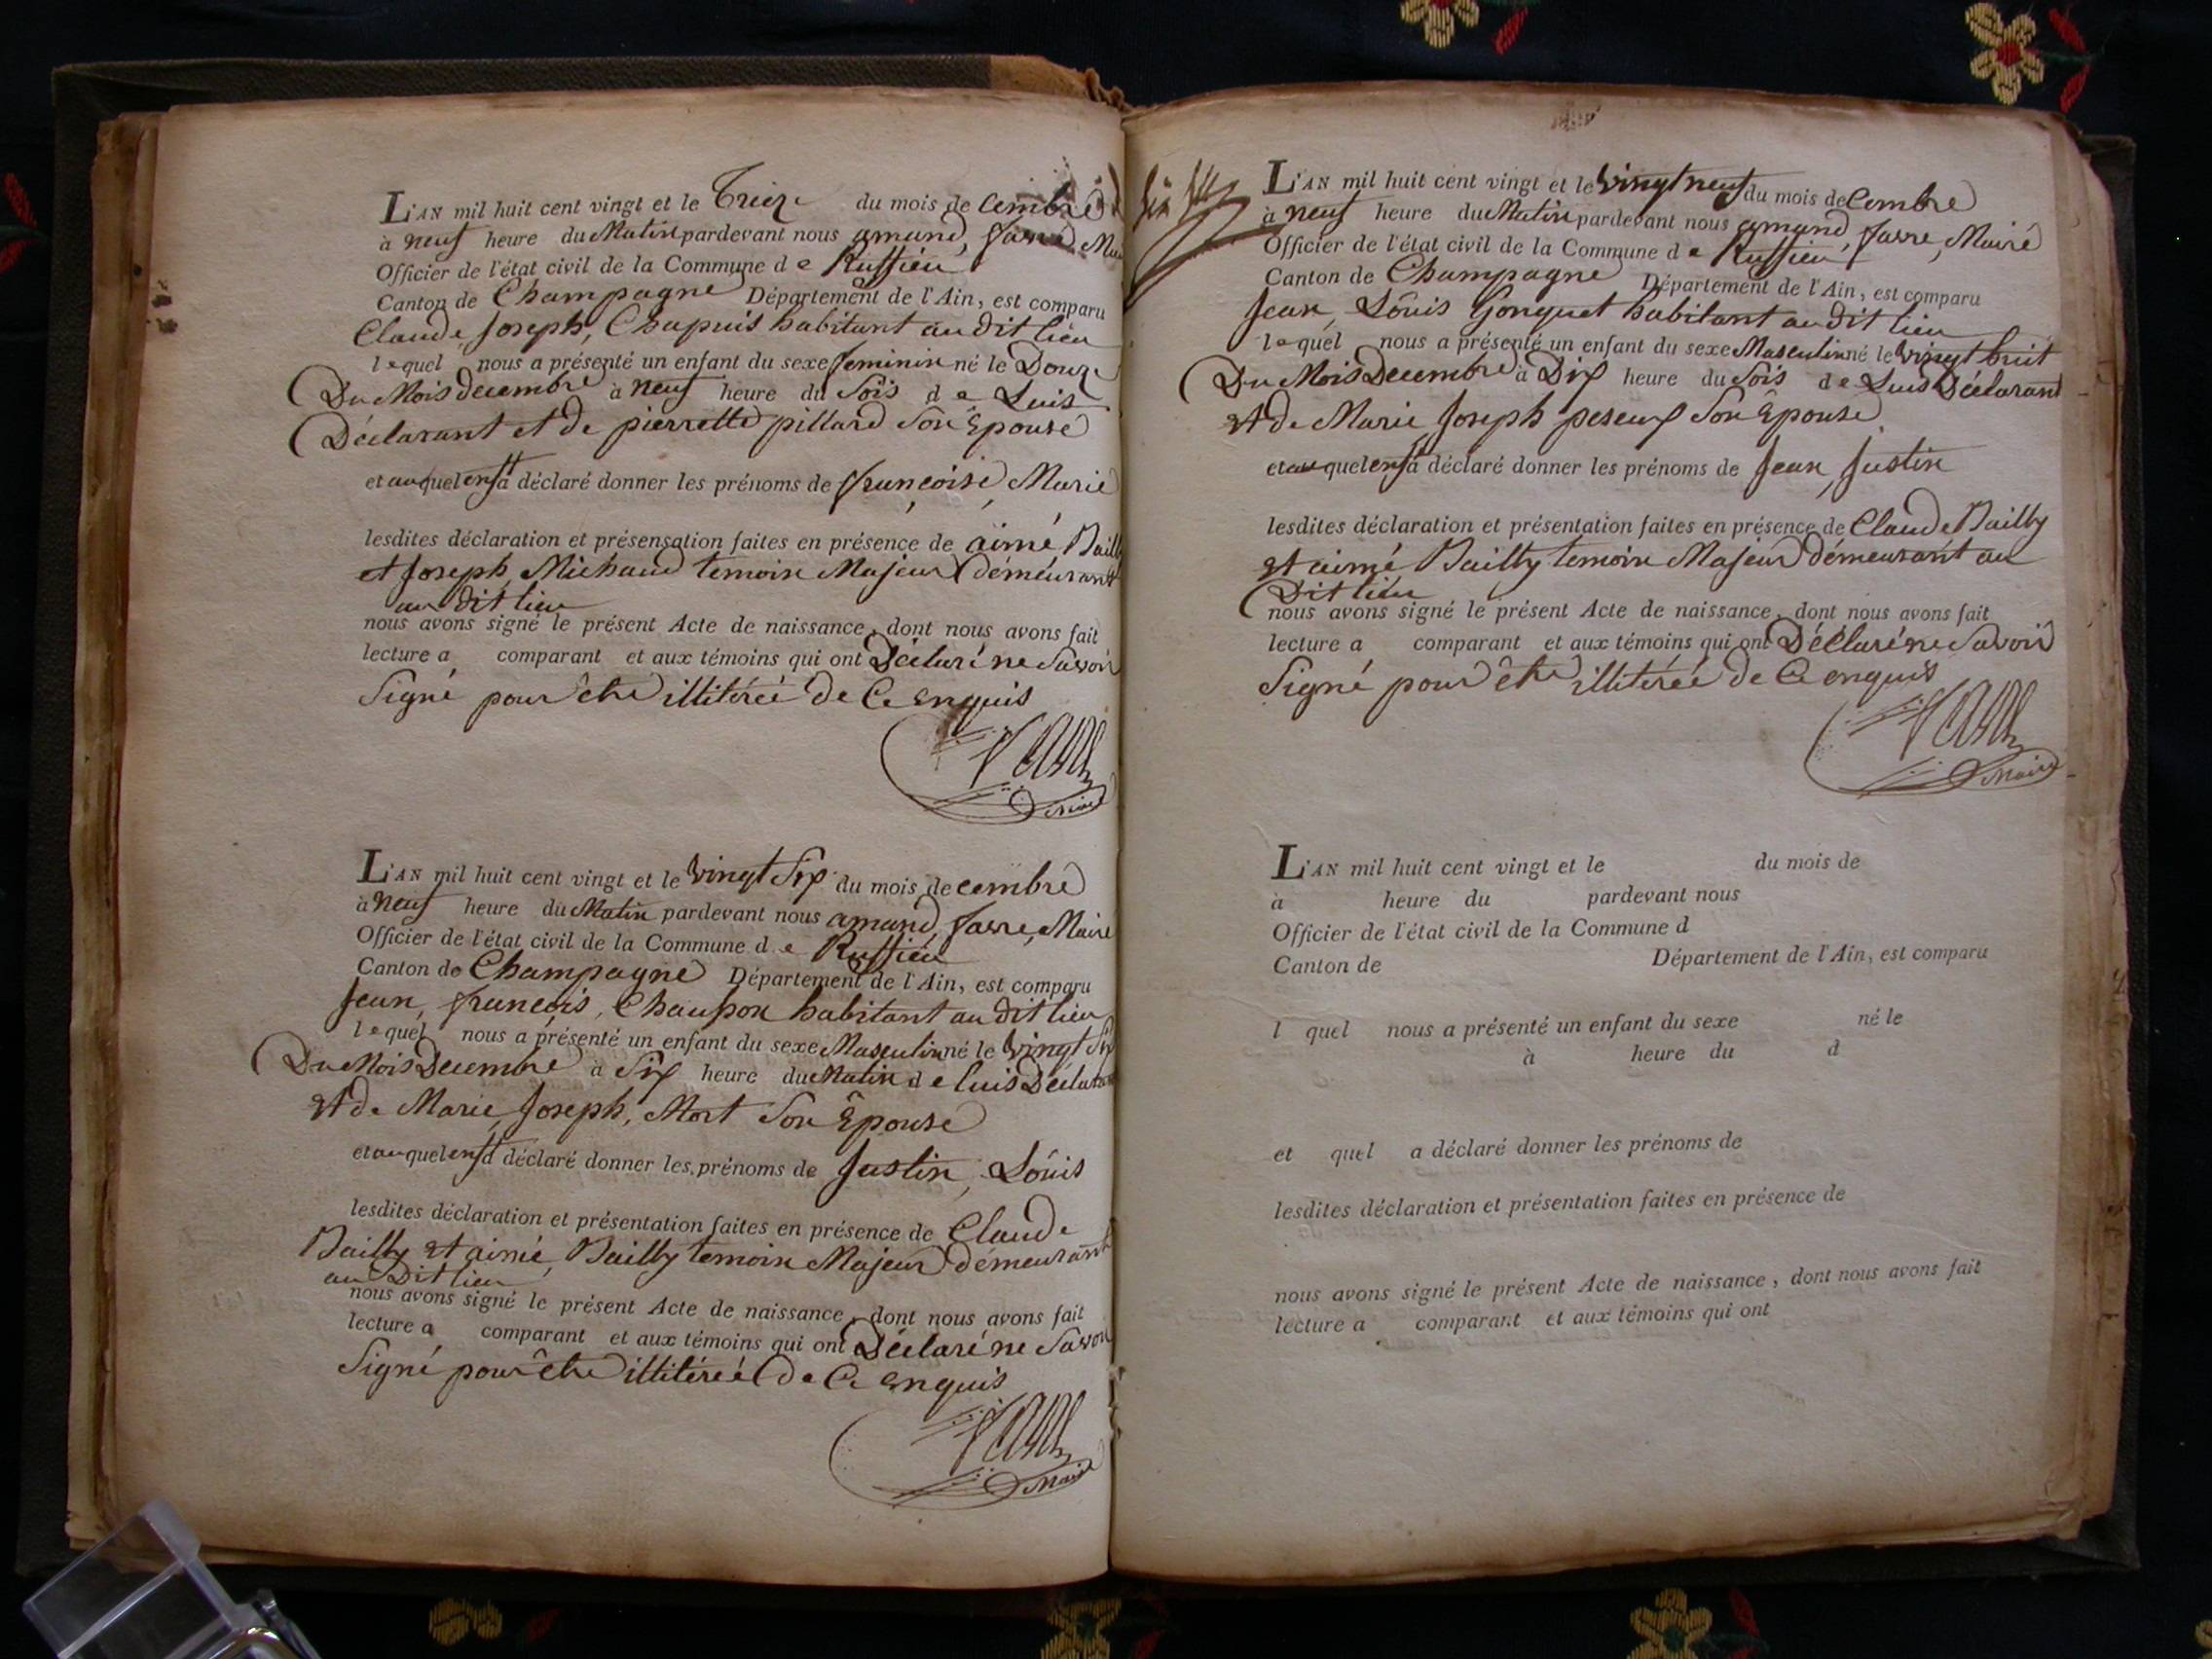 L'AN mil huit cent vingt et le Treize du mois de cembre
à neuf heure du Matin pardevant nous amand, favre, Mai
Officier de l'état civil de la Commune d e Ruffieu
Canton de Champagne Département de l'Ain, est comparu
Claude, Joseph, Chapuis habitant au dit lieu
l e quel nous a présenté un enfant du sexe feminin né le Douze
Du Mois decembre à neuf heure du Sois d e Luis
Déclarant et de pierrette pillard Son Epouse
et auquel enft a déclaré donner les prénoms de françoise, Marie
lesdites déclaration et présensation faites en présence de aimé Bailly
et Joseph Michaud temoin Majeur démeurant
au dit lieu
nous avons signé le présent Acte de naissance, dont nous avons fait
lecture a comparant et aux témoins qui ont Déclaré ne Savoir
Signé pour être illitérée de Ce enquis
favre
Maire
L'AN mil huit cent vingt et le vingt Six du mois de cembre
à neuf heure du Matin pardevant nous amand, favre, Maire
Officier de l'état civil de la Commune d e Ruffieu
Canton de Champagne Département de l'Ain, est comparu
Jean, françois, Chaupon habitant au dit lieu
l e quel nous a présenté un enfant du sexe Masculin né le vingt Six
Du Mois Decembre à Six heure du Matin d e luis Déclarant
et de Marie, Joseph, Mort Son Epouse
et auquel enft a déclaré donner les prénoms de Justin, Loüis
lesdites déclaration et présentation faites en présence de Claude
Bailly et aimé, Bailly temoin Majeur démeurant
au Dit lieu
nous avons signé le présent Acte de naissance, dont nous avons fait
lecture a comparant et aux témoins qui ont Déclaré ne Savoir
Signé pour être illitérée de Ce enquis
favre
Maire
L'AN mil huit cent vingt et le vingt neuf du mois de Cembre
à neuf heure du Matin pardevant nous amand, favre, Maire
Officier de l'état civil de la Commune d e Ruffieu
Canton de Champagne Département de l'Ain, est comparu
Jean, Loüis Gonguet habitant au dit lieu
l e quel nous a présenté un enfant du sexe Masculin né le vingt huit
Du Mois Decembre à Dix heure du Sois d e Luis Déclarant
et de Marie, Joseph peseux Son Epouse
et au quel enft a déclaré donner les prénoms de Jean, Justin
lesdites déclaration et présentation faites en présence de Claude Bailly
et aimé Bailly temoin Majeur démeurant au
Dit lieu
nous avons signé le présent Acte de naissance, dont nous avons fait
lecture a comparant et aux témoins qui ont Déclaré ne Savoir
Signé pour être illitérée de Ce enquis
favre
Maire
L'AN mil huit cent vingt et le du mois de
à heure du pardevant nous
Officier de l'état civil de la Commune d
Canton de Département de l'Ain, est comparu
l quel nous a présenté un enfant du sexe né le
à heure du d
et quel a déclaré donner les prénoms de
lesdites déclaration et présentation faites en présence de
nous avons signé le présent Acte de naissance, dont nous avons fait
lecture a comparant et aux témoins qui ont